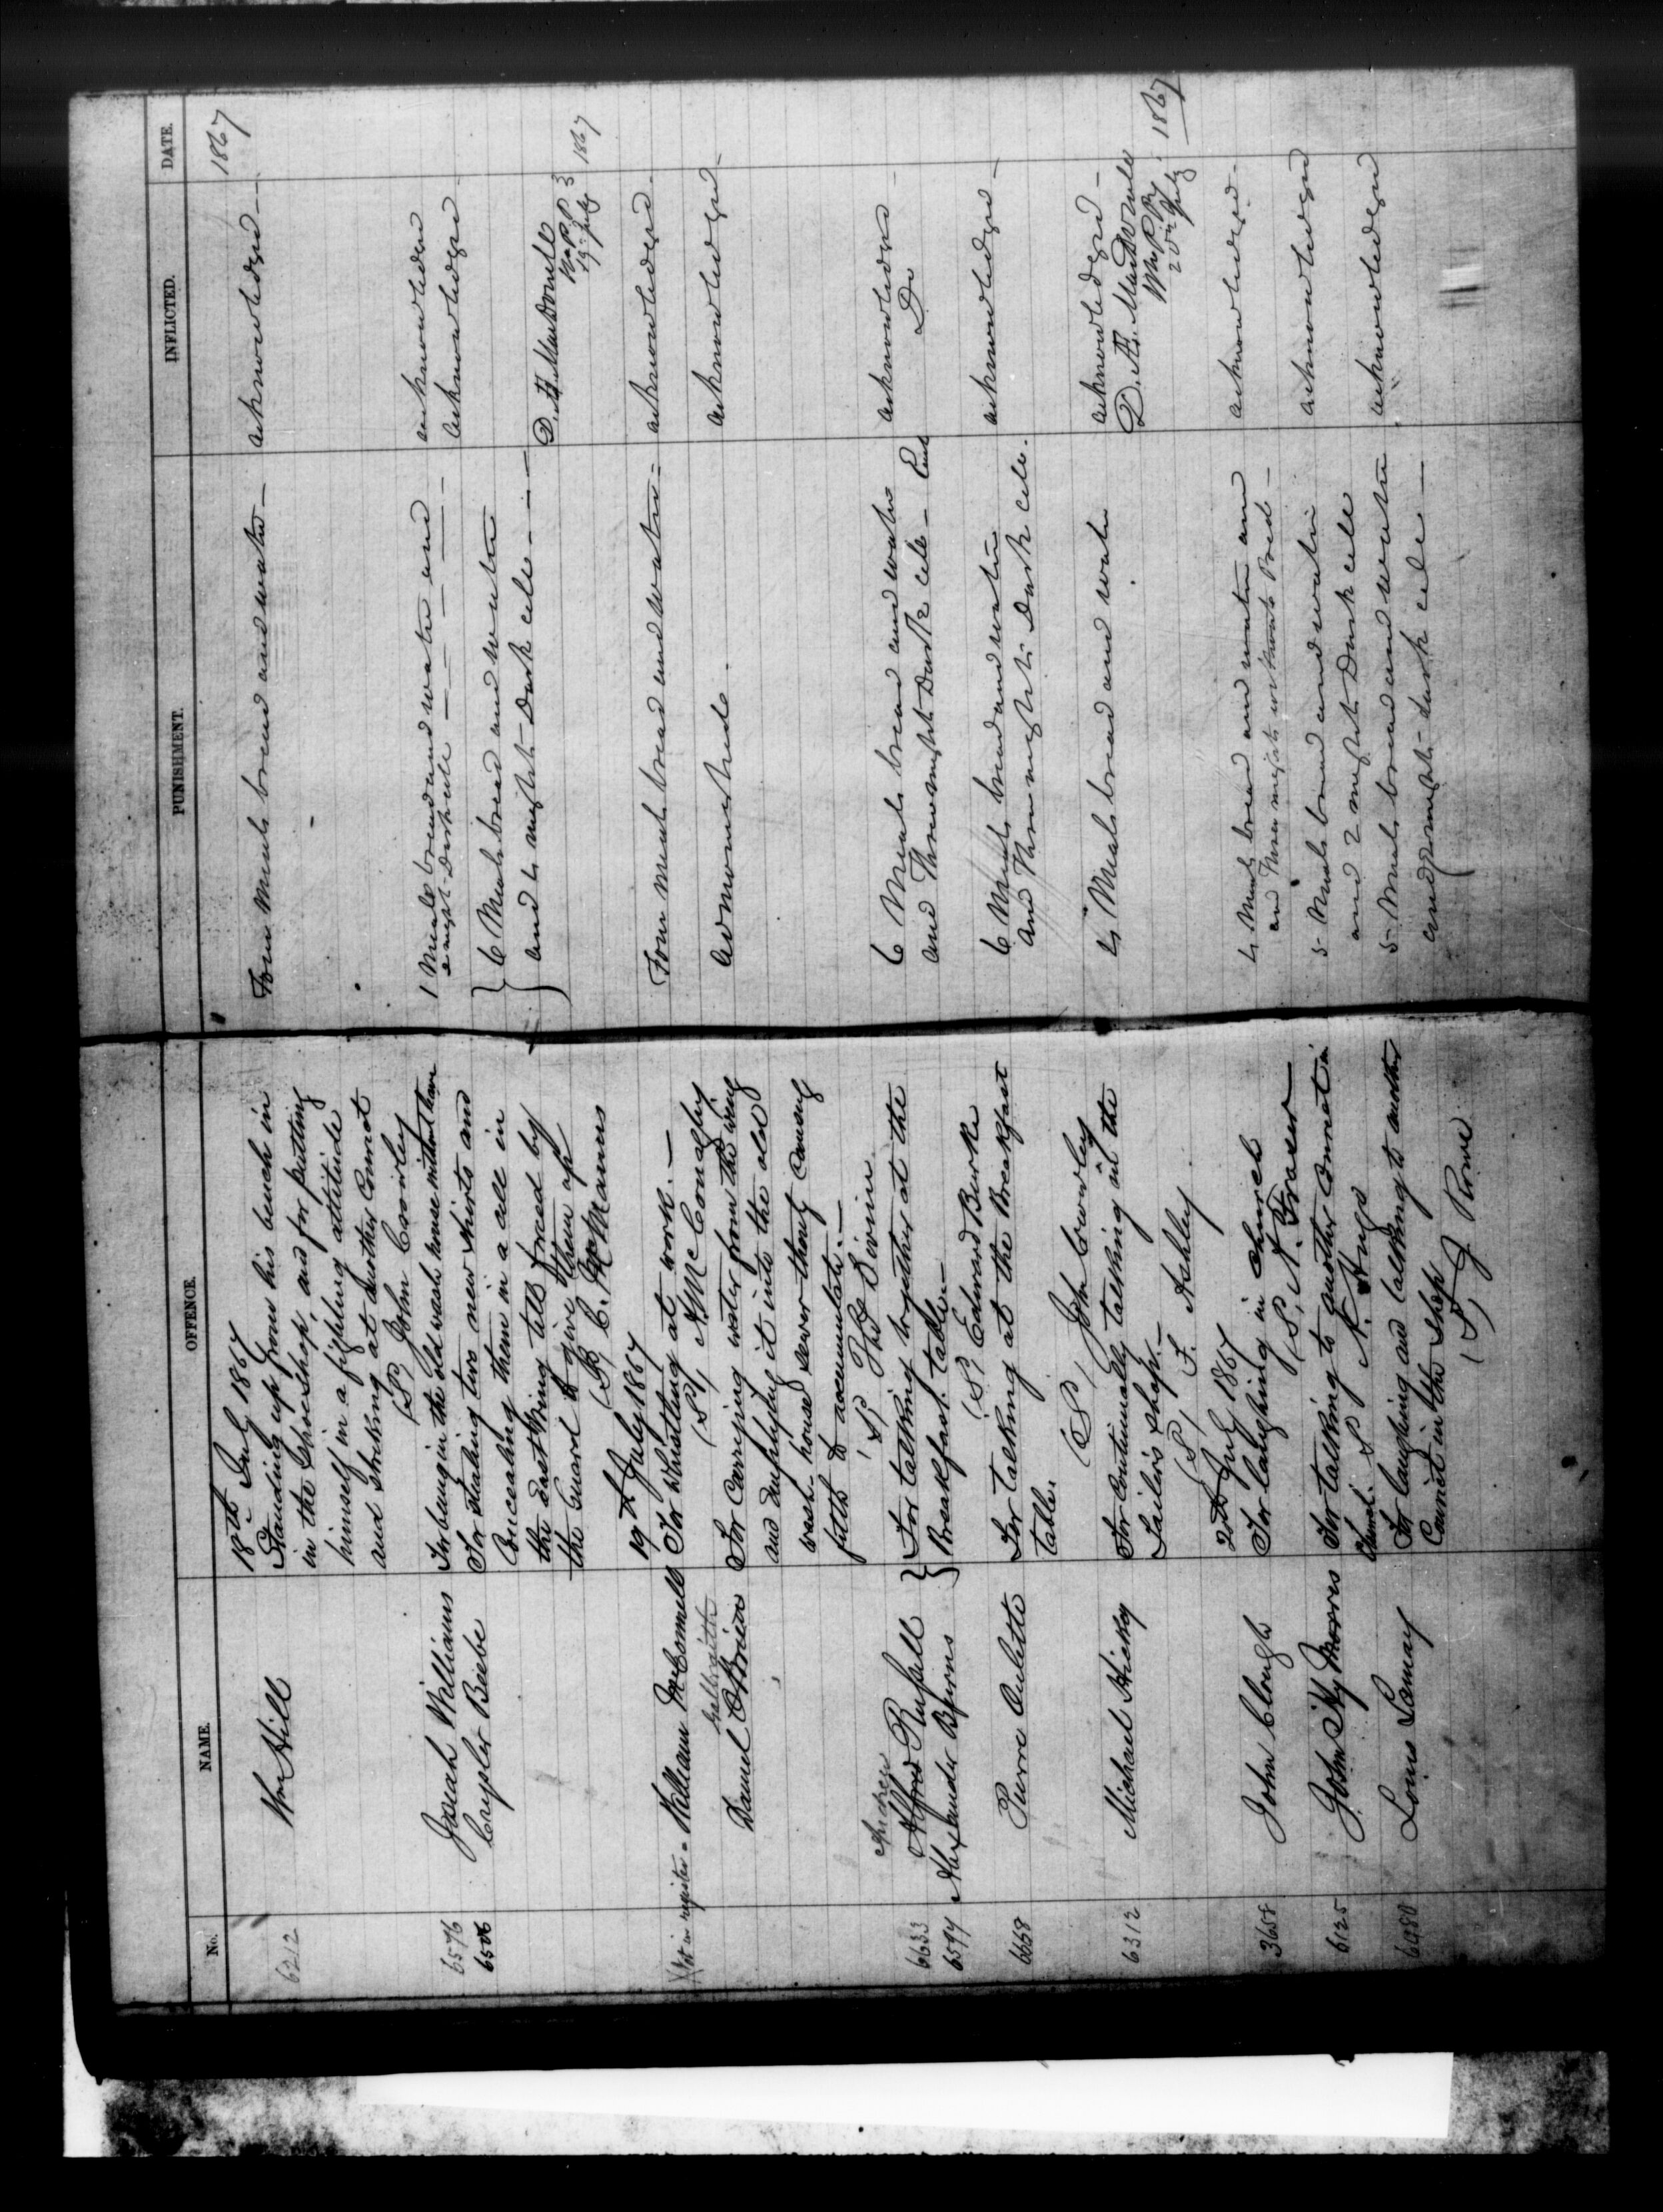 No. NAME. OFFENCE. PUNISHMENT. INFLICTED. DATE.
18th July 1867 1867
6212 Wm Hill Standing up from his bench in Four Meals bread and water — acknowledged —
in the Shoeshop, and for putting
himself in a fighting attitude
and striking at another Convict
(S) John Crowley
6576 Josiah Williams For being in the old wash house without leave 1 Meals bread and water and acknowledged
2 night Dark cell
6506 Cryspler Beebe For stealing two new shirts and 6 Meals bread and water acknowledged
Concealing them in a cell in and 4 nights Dark cell
the East Wing till forced by D. Æ. MacDonell
the Guard to give them up W. P. P.
(S) C. McManus 19th July 1867
19th July 1867
Not in register - William McConnell For Whistling at work. — Four meals bread and water - acknowledged -
(S) A McConaghy
Galbraith
Daniel O'Brien For Carrying water from the wing Admonished. acknowledged -
and emptying it into the old
wash house sewer thereby causing
filth to accumulate. —
(S) Thos Devin
Andrew
6633 Alfred Russell For talking together at the 6 Meals bread and water acknowledged
6594 Alexander Byrns Breakfast table. — and Three nights Dark cell - Each Do
(S) Edward Burke
6668 Pierre Oulette For talking at the Breakfast 6 Meals bread and water acknowledged -
table. and Three nights Dark cell.
(S) John Crowley
6312 Michael Hickey For continually talking in the 4 Meals bread and water acknowledged -
Tailor's shop. — D. Æ. MacDonell
(S) F. Ashley W. P. P.
20th July 1867
20th July 1867
3658 John Clough For laughing in church 4 Meals bread and water and acknowledged -
(S) A. Fraser — and Three nights without Bed -
6125 John Sky Morres For talking to another Convict in 5 Meals bread and water acknowledged
Church. (S) and 2 nights Dark cell
6480 Louis Lemay For laughing and talking to another 5 Meals bread and water acknowledged
Convict in the Shop and 2 nights dark cell —
(S) J. Rowe